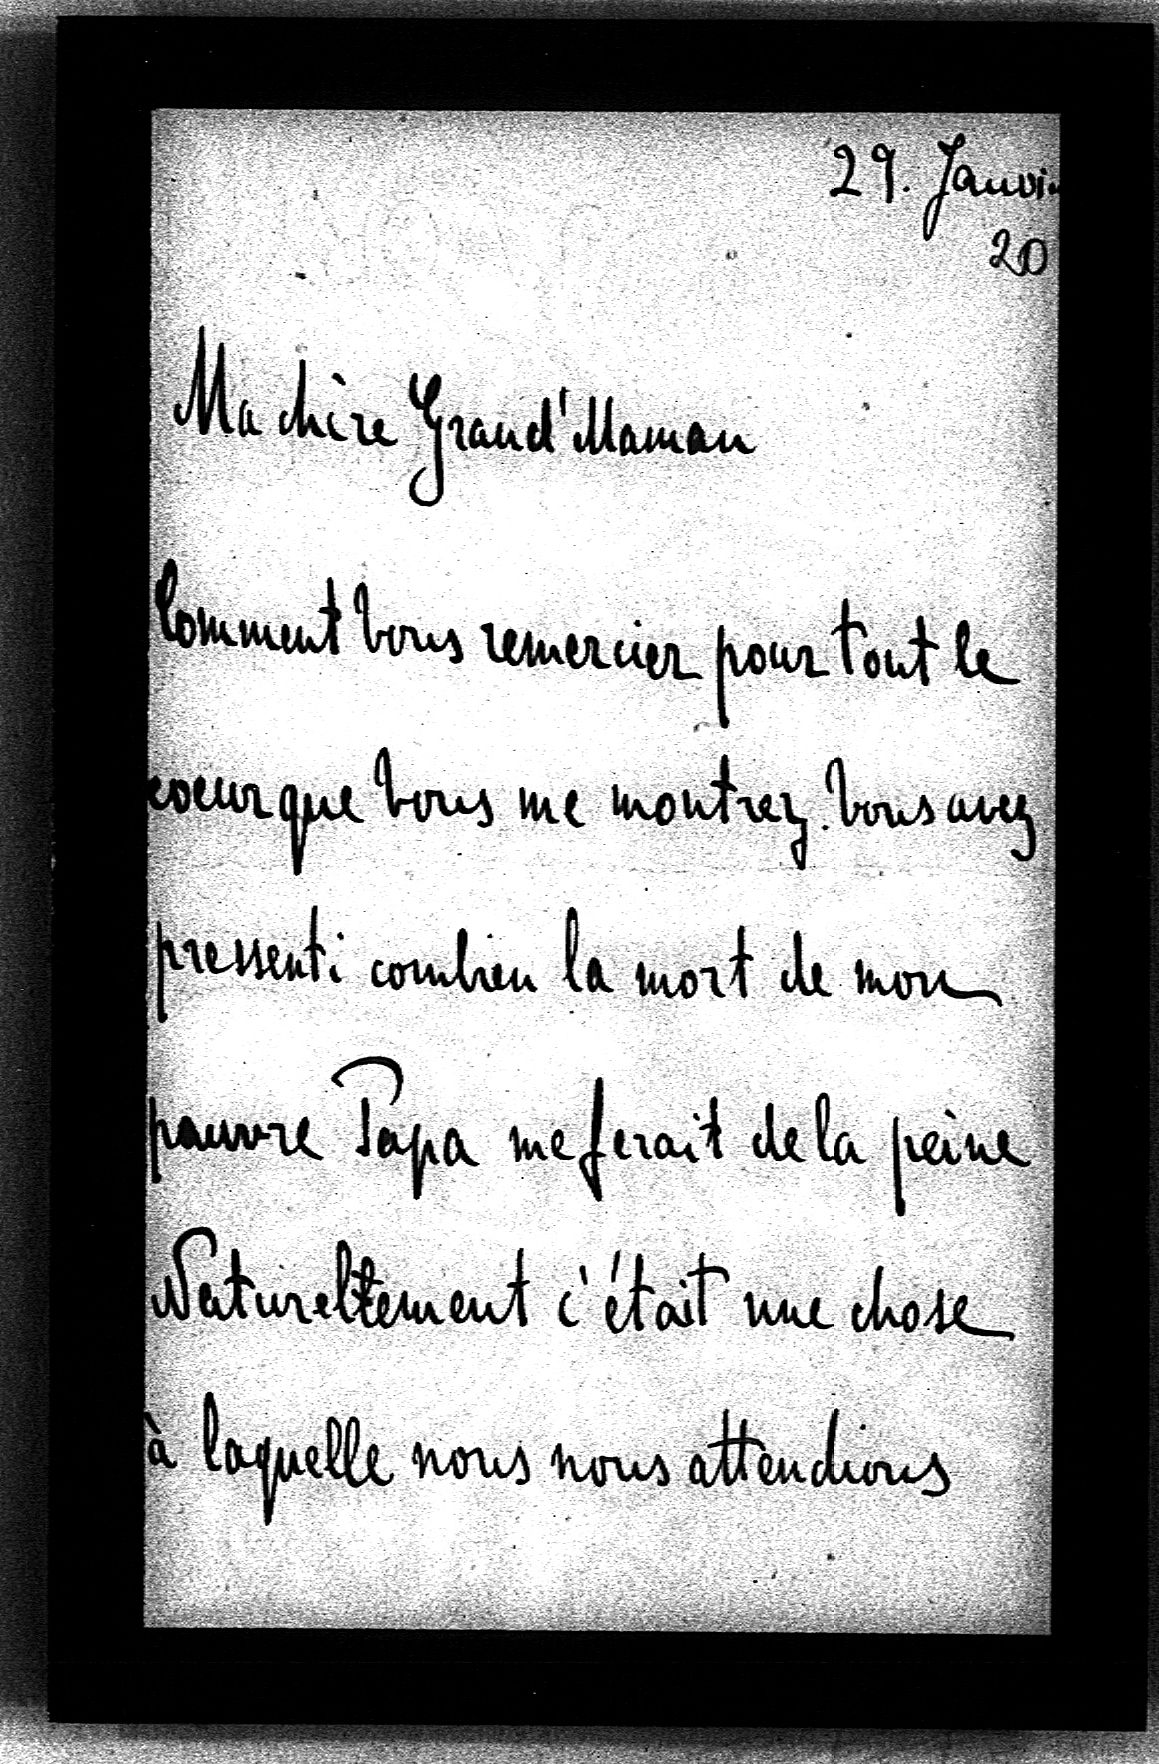 29. Janvi
20
Ma chère Grand'Maman
Comment Vous remercier pour tout le
coeur que Vous me montrez. Vous avez
pressenti combien la mort de mon
pauvre Papa me ferait de la peine
Naturellement c'était une chose
à laquelle nous nous attendions